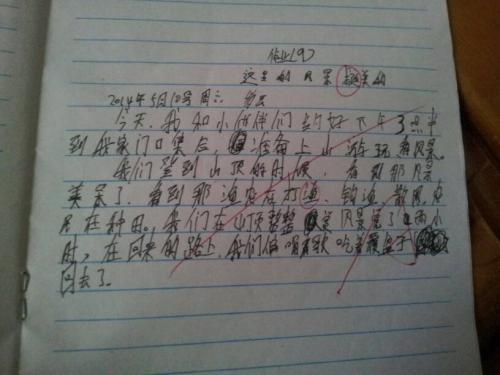 作业(9)
这里的风景挺美的
2014年5月10号 周六
今天,我和小伙伴们约好下午3点半
到我家门口集合,准备上山游玩看风景。
我们登到山顶的时候,看到那风景
美呆了,看到那渔夫在打渔,钓渔,散
在种田,我们在山顶整整风景觉了两小
时,在回来的路上,我们唱着歌吃着
回去了。